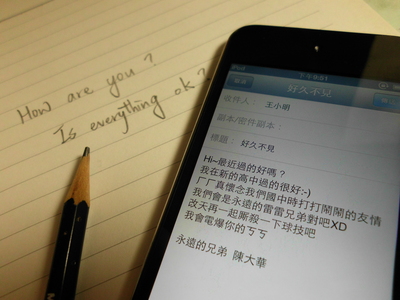 How are you?
Is everything ok?
下午8:51
好久不見
收件人： 王小明
副本/密件副本：
標題： 好久不見
Hi~最近過的好嗎？
我在新的高中過的很好:-)
ㄏㄏ真懷念我們國中時打打鬧鬧的友情
我們會是永遠的雷雷兄弟對吧XD
改天再一起廝殺一下球技吧
我會電爆你的ㄎㄎ
永遠的兄弟 陳大華